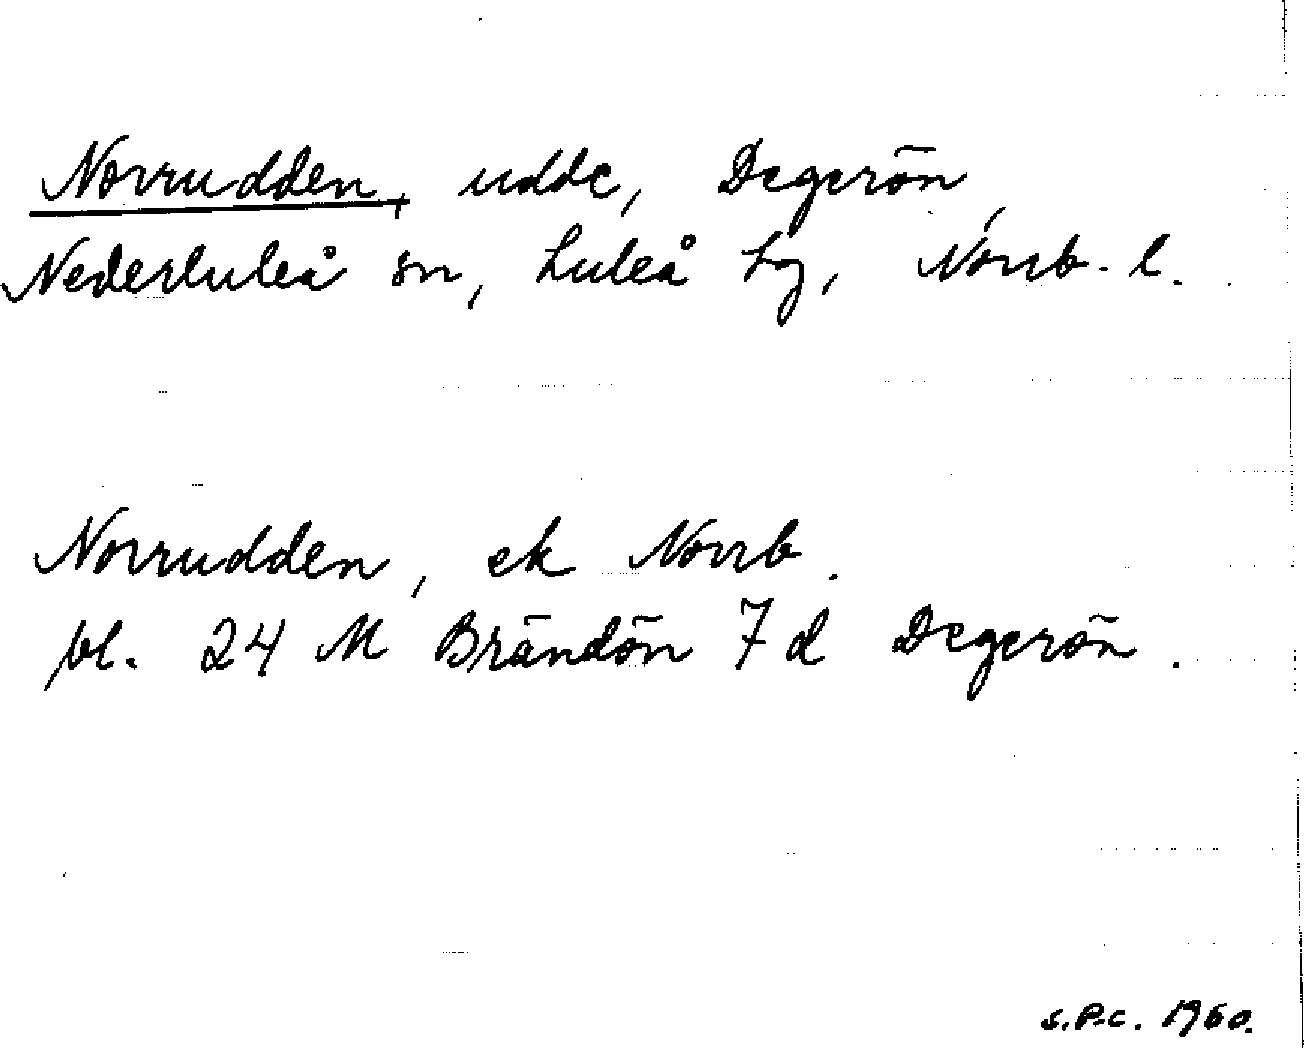 Norrudden, udde, Degerön,
Nederluleå sn, Luleå tg, Norrb. l.
Norrudden, ek Norrb.
bl. 24 M Brändön 7 d Degerön.
S.P-c. 1960.